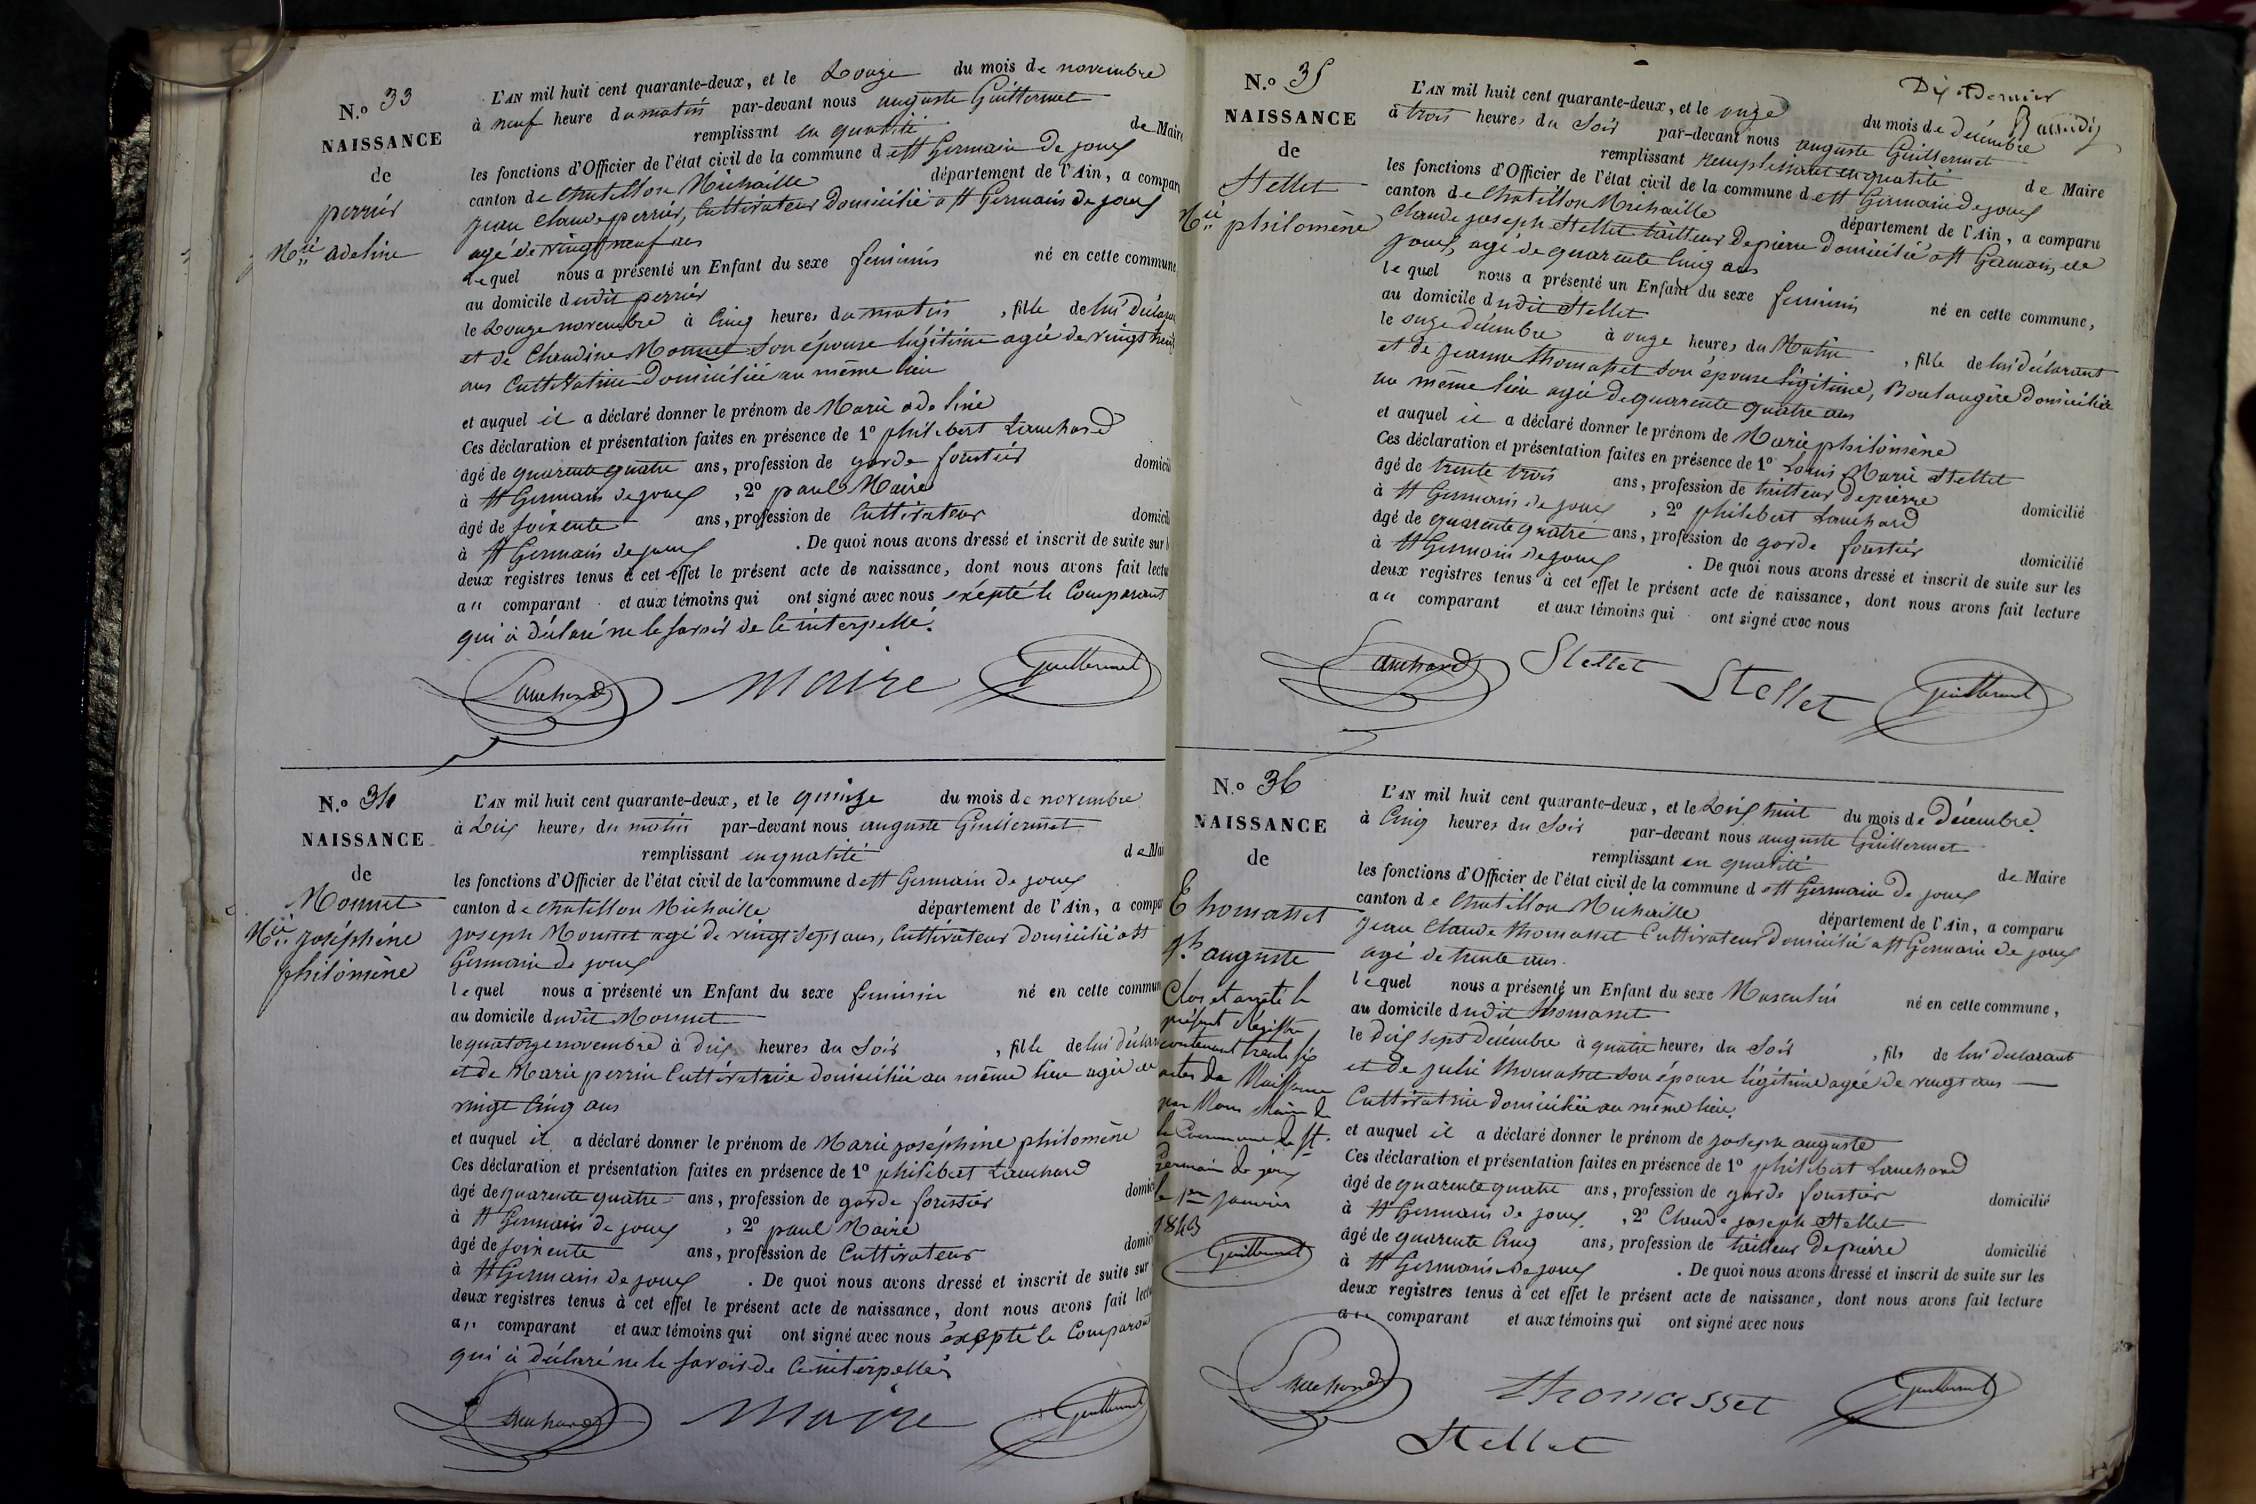 N.o 33
NAISSANCE
de
perrier
M.ie adeline
L'AN mil huit cent quarante-deux, et le Douze du mois de novembre
à neuf heure du matin par-devant nous auguste Guillermet
remplissant en qualité de Maire
les fonctions d'Officier de l'état civil de la commune de St Germain de joux
canton de Chatillon Michaille département de l'Ain, a comparu
jean claude perrier, Cultivateur Domicilié a St Germain de joux
agé de vingt neuf ans
lequel nous a présenté un Enfant du sexe feminin né en cette commune,
au domicile dudit perrier
le Douze novembre à Cinq heures du matin, fille de lui Déclarant
et de Claudine Monnet Son épouse légitime agée de vingt neuf
ans Cultivatrice Domiciliée au même lieu
et auquel il a déclaré donner le prénom de Marie adeline
Ces déclaration et présentation faites en présence de 1o philibert Lauchard
âgé de quarente quatre ans, profession de garde forestier domicilié
à St Germain de joux, 2o paul Maire
âgé de soixente ans, profession de Cultivateur domicilié
à St Germain de joux. De quoi nous avons dressé et inscrit de suite sur l
deux registres tenus à cet effet le présent acte de naissance, dont nous avons fait lectu
au comparant et aux témoins qui ont signé avec nous éxépté le Comparant
qui à Déclaré ne le savoir de Ce interpellé.
Lauchard Maire Guillermet
N.o 34
NAISSANCE
de
Monnet
M.ie joséphine
philomène
L'AN mil huit cent quarante-deux, et le quinze du mois de novembre
à Dix heures du matin par-devant nous auguste Guillermet
remplissant en qualité de Mai
les fonctions d'Officier de l'état civil de la commune de St Germain de joux
canton de Chatillon Michaille département de l'Ain, a compar
joseph Monnet agé de vingt sept ans, Cultivateur domicilié a St
Germain de joux
lequel nous a présenté un Enfant du sexe feminin né en cette commun
au domicile dudit Monnet
le quatorze novembre à dix heures du Soir, fille de lui déclar
et de Marie perrin Cultivatrice domiciliée au même lieu agée de
vingt Cinq ans
et auquel il a déclaré donner le prénom de Marie joséphine philomène
Ces déclaration et présentation faites en présence de 1o philibert Lauchard
âgé de quarente quatre ans, profession de garde forestier domici
à St Germain de joux, 2o paul Maire
âgé de soixente ans, profession de Cultivateur domici
à St Germain de joux. De quoi nous avons dressé et inscrit de suite sur
deux registres tenus à cet effet le présent acte de naissance, dont nous avons fait lectu
au comparant et aux témoins qui ont signé avec nous éxepté le Comparant
qui à Déclaré ne le savoir de Ce interpellé
Lauchard Maire Guillermet
Dix et Dernier
N.o 35
NAISSANCE
de
Stellet
M.ie philomène
L'AN mil huit cent quarante-deux, et le onze du mois de Décembre
à trois heures du Soir par-devant nous auguste Guillermet
remplissant remplissant en qualité de Maire
les fonctions d'Officier de l'état civil de la commune de St Germain de joux
canton de Chatillon Michaille département de l'Ain, a comparu
Claude joseph Stellet tailleur De pierre Domicilié a St Germain de
joux, agé de quarente Cinq ans
lequel nous a présenté un Enfant du sexe feminin né en cette commune,
au domicile dudit Stellet
le onze décembre à onze heures du Matin, fille de lui déclarant
et de jeanne thomasset Son épouse légitime, Boulangère Domiciliée
au même lieu agée De quarente quatre ans
et auquel il a déclaré donner le prénom de Marie philomène
Ces déclaration et présentation faites en présence de 1o Louis Marie Stellet
âgé de trente trois ans, profession de tailleur De pierre domicilié
à St Germain de joux, 2o philibert Lauchard
âgé de quarente quatre ans, profession de garde forestier domicilié
à St Germain de joux. De quoi nous avons dressé et inscrit de suite sur les
deux registres tenus à cet effet le présent acte de naissance, dont nous avons fait lecture
au comparant et aux témoins qui ont signé avec nous
Lauchard Stellet Stellet Guillermet
N.o 36
NAISSANCE
de
Thomasset
jh auguste
L'AN mil huit cent quarante-deux, et le Dix huit du mois de Décembre
à Cinq heures du Soir par-devant nous auguste Guillermet
remplissant en qualité de Maire
les fonctions d'Officier de l'état civil de la commune de St Germain de joux
canton de Chatillon Michaille département de l'Ain, a comparu
jean Claude thomasset Cultivateur Domicilié a St Germain de joux
agé de trente ans.
lequel nous a présenté un Enfant du sexe Masculin né en cette commune,
au domicile dudit thomasset
le dix sept Décembre à quatre heures du Soir, fils de lui déclarant
et de julie thomasset son épouse légitime agée de vingt ans
Cultivatrice domiciliée au même lieu.
et auquel il a déclaré donner le prénom de joseph auguste
Ces déclaration et présentation faites en présence de 1o philibert Lauchard
âgé de quarente quatre ans, profession de garde forestier domicilié
à St Germain de joux, 2o Claude joseph Stellet
âgé de quarente Cinq ans, profession de tailleur De pierre domicilié
à St Germain de joux. De quoi nous avons dressé et inscrit de suite sur les
deux registres tenus à cet effet le présent acte de naissance, dont nous avons fait lecture
au comparant et aux témoins qui ont signé avec nous
Lauchard thomasset Guillermet
Stellet
Clos et arrêté le
présent Régistre
contenant trente six
actes de Naissance
par Nous Maire de
la Commune de St.
Germain de joux
le 1er janvier
1843
Guillermet